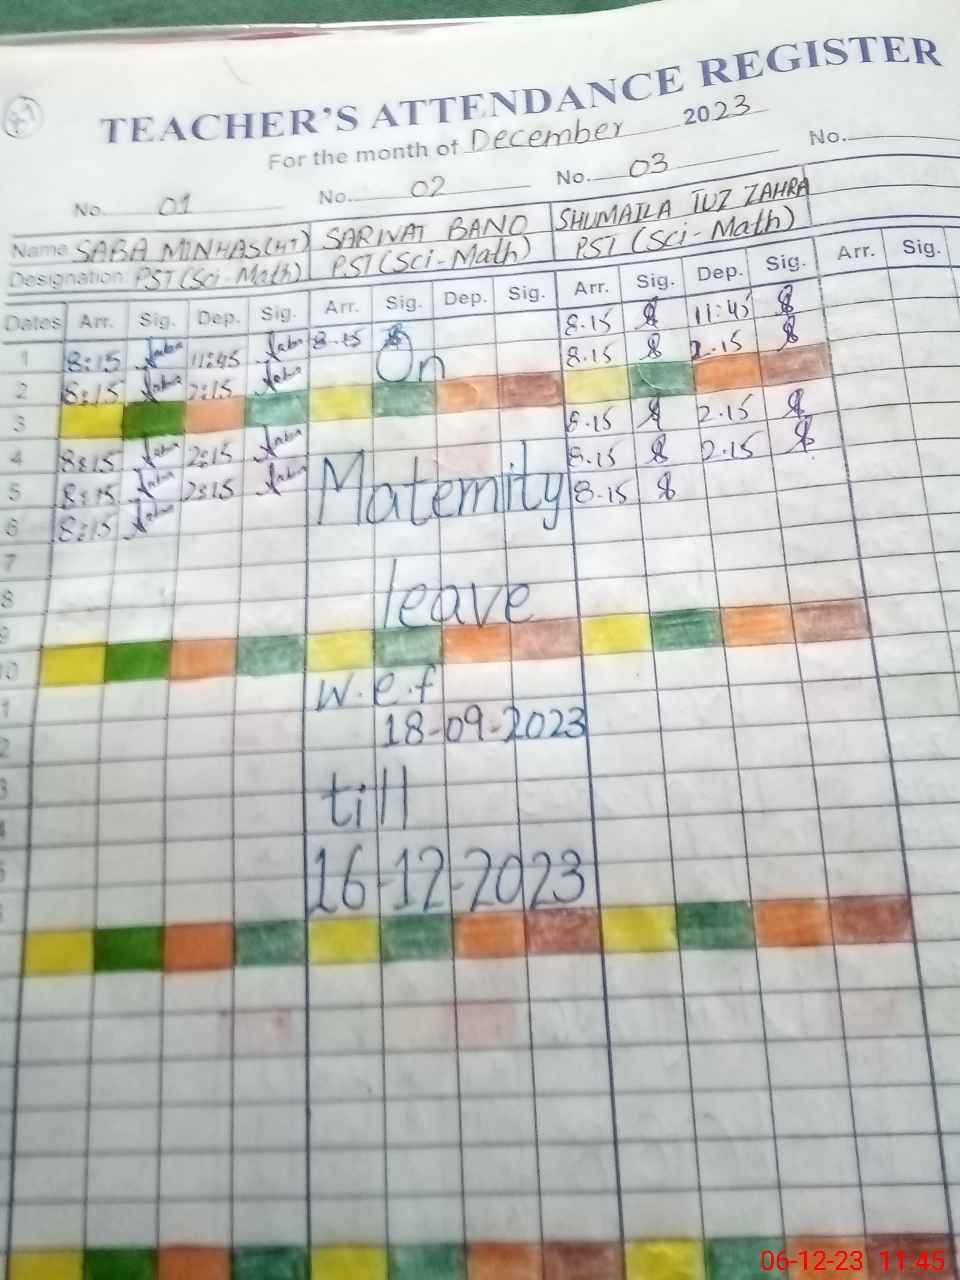 TEACHER'S ATTENDANCE REGISTER
For the month of December 2023
No. 01 No. 02 No. 03 No.
Name SABA MINHAS(HT) SARWAT BANO SHUMAILA TUZ ZAHRA
Designation PST (Sci-Math) PST (Sci-Math) PST (Sci-Math)
Dates Arr. Sig. Dep. Sig. Arr. Sig. Dep. Sig. Arr. Sig. Dep. Sig. Arr. Sig.
1 8:15 Saba 11:45 Saba 8.15 8.15 11:45
On
2 8:15 Saba 2:15 Saba 8.15 2.15
3
4 8:15 Saba 2:15 Saba 8.15 2.15
5 8:15 Saba 2:15 Saba 8.15 2.15
Maternity
6 8:15 Saba 8.15
7
8
leave
9
10
w.e.f
18-09-2023
till
16-12-2023
06-12-23 11:45